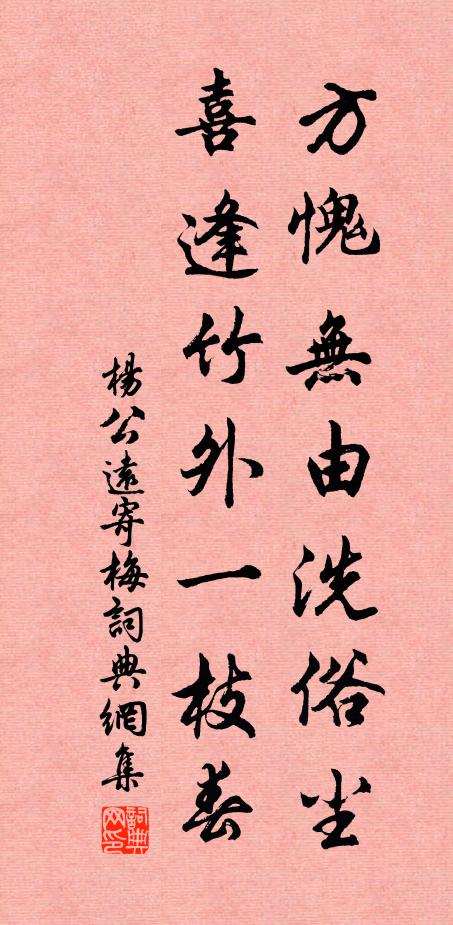 方愧無由洗俗尘
喜逢竹外一枝春
楊公遠寄梅詞典網集
詞典网印